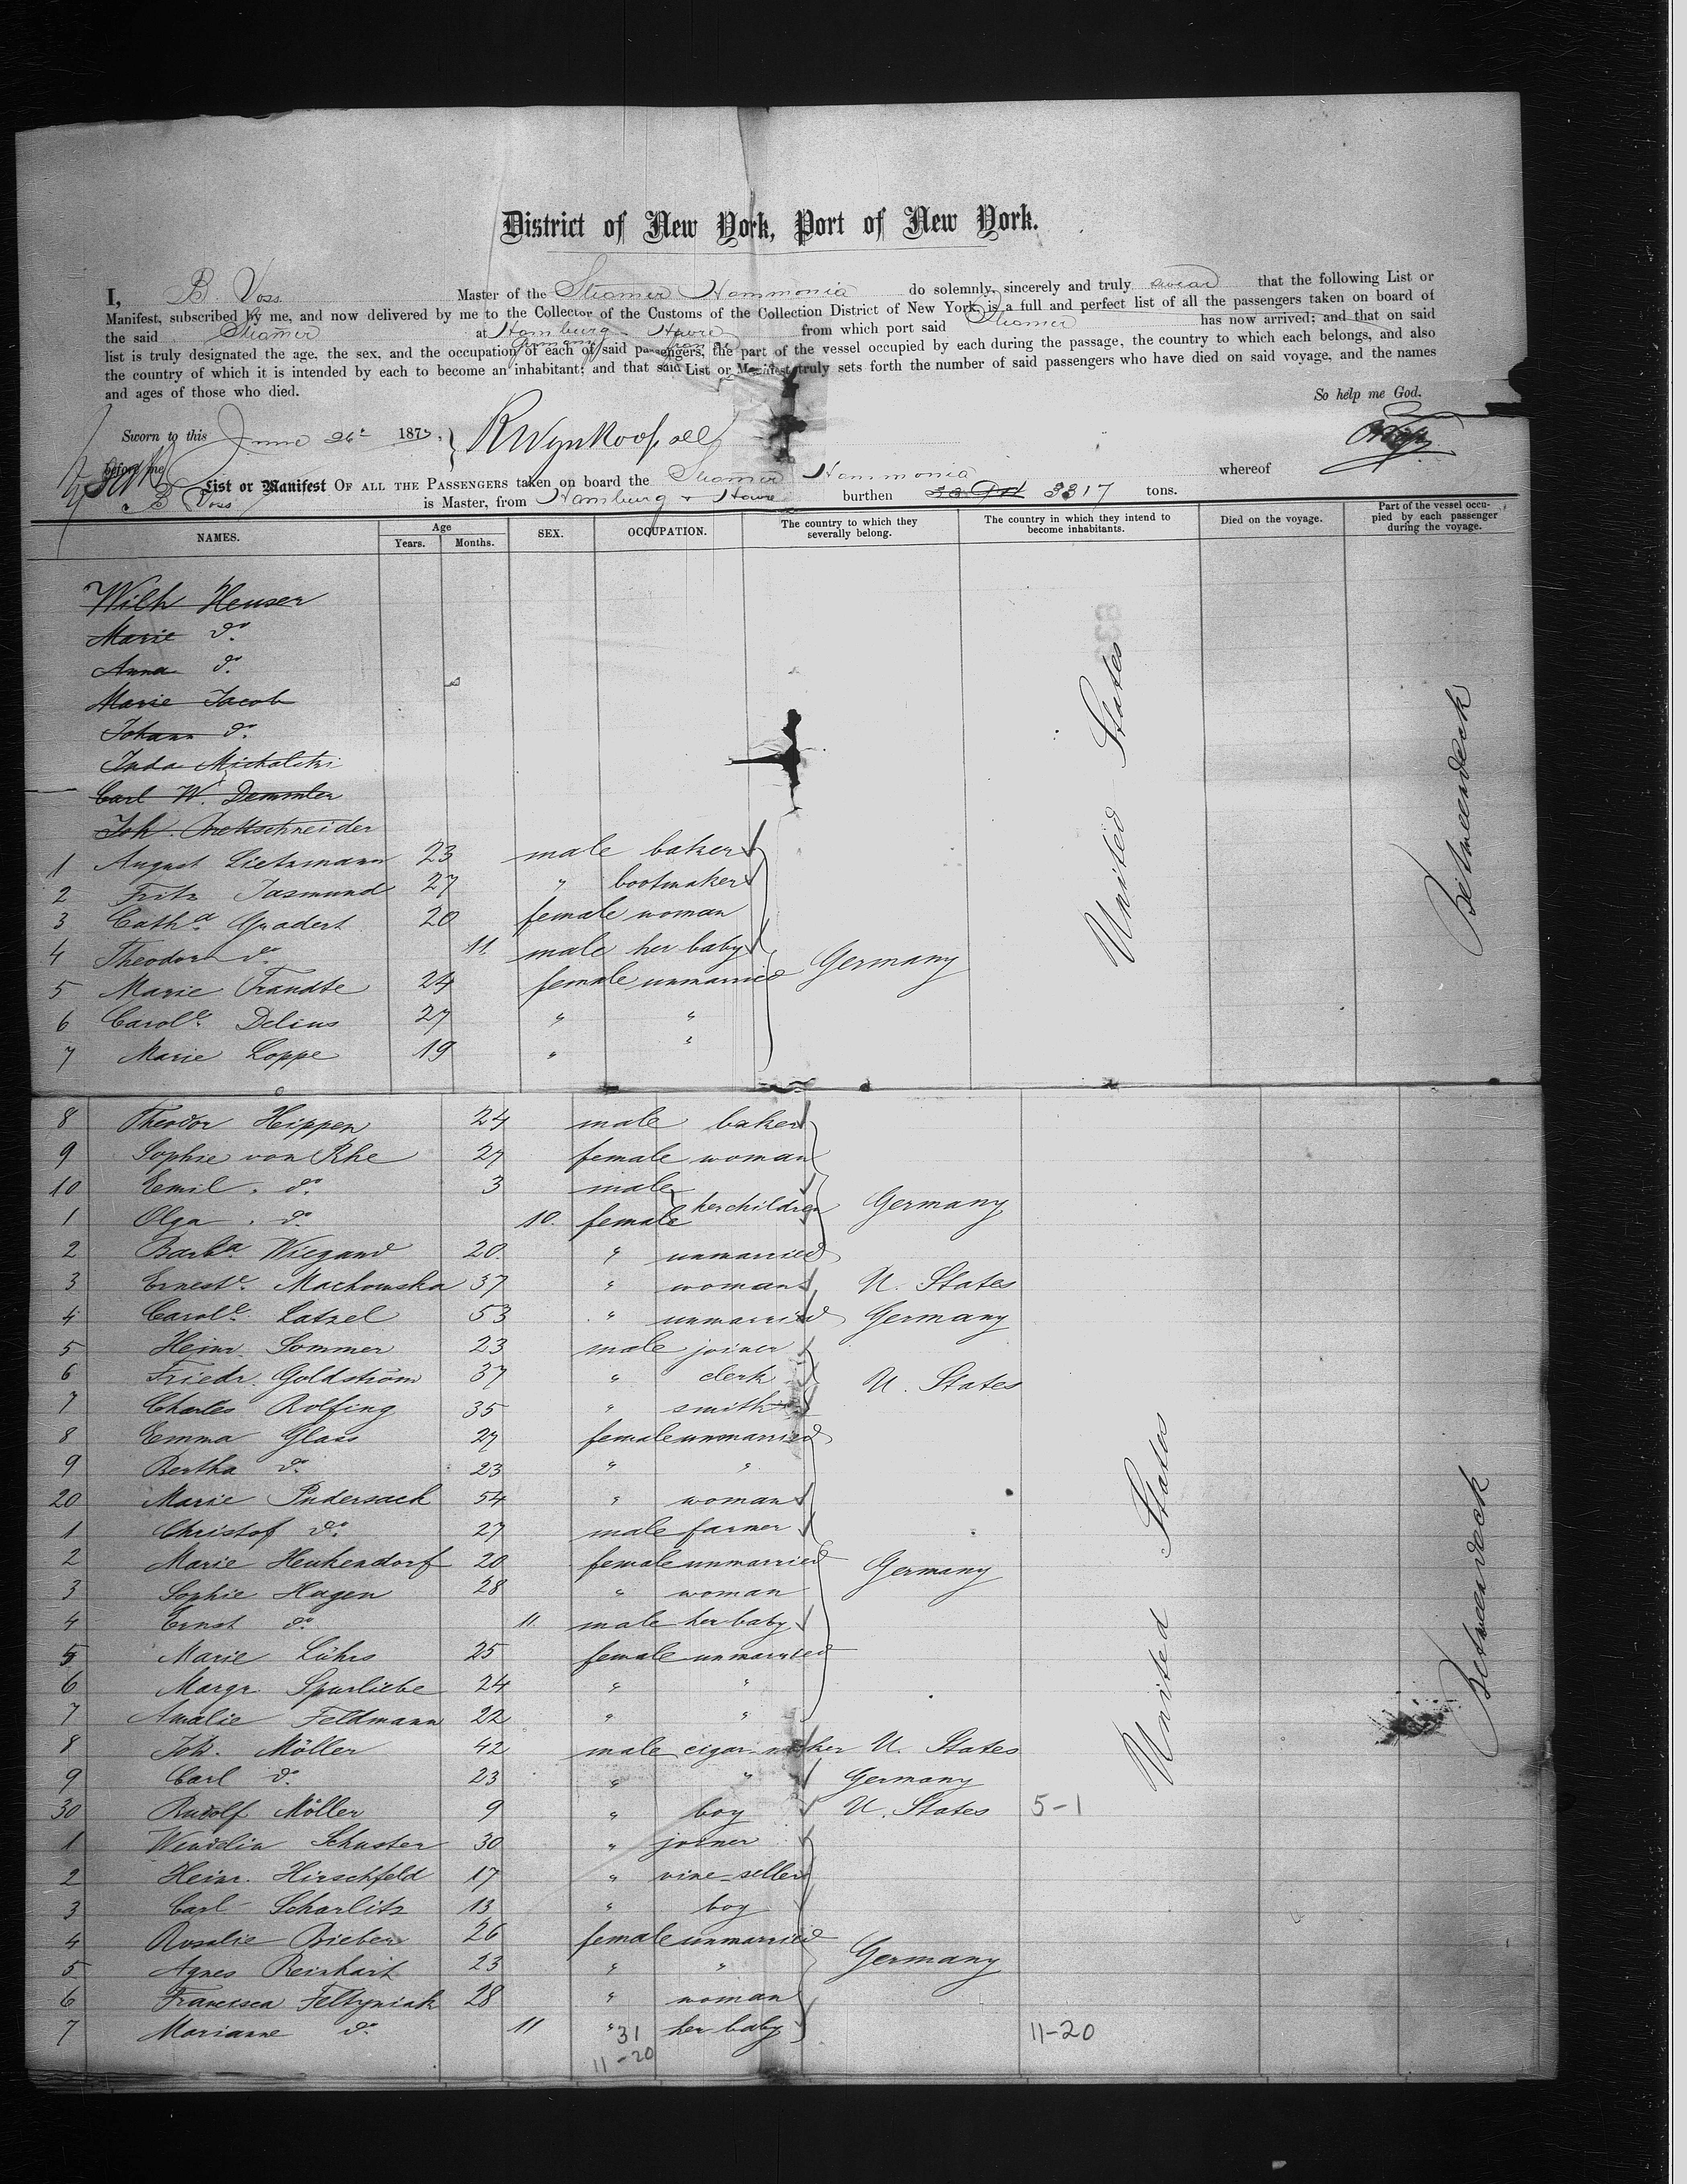 District of New York, Port of New York.
I, B. Voss Master of the Steamer Hammonia do solemnly, sincerely and truly swear that the following List or
Manifest, subscribed by me, and now delivered by me to the Collector of the Customs of the Collection District of New York, is a full and perfect list of all the passengers taken on board of
the said Steamer at Hamburg Havre from which port said Steamer has now arrived; and that on said
Germany France
list is truly designated the age, the sex, and the occupation of each of said passengers, the part of the vessel occupied by each during the passage, the country to which each belongs, and also
the country of which it is intended by each to become an inhabitant; and that said List or Manifest truly sets forth the number of said passengers who have died on said voyage, and the names
and ages of those who died.
So help me God.
Sworn to this June 26t 1873,
before me
List or Manifest OF ALL THE PASSENGERS taken on board the Steamer Hammonia whereof
B Voss is Master, from Hamburg & Havre burthen 3317 tons.
NAMES. Age Years. Months. SEX. OCCUPATION. The country to which they severally belong. The country in which they intend to become inhabitants. Died on the voyage. Part of the vessel occupied by each passenger during the voyage.
Wilh Heuser
Marie do.
Anna do.
Marie Jacob
Johann do.
Michaletzki
Carl W. Demmler
Joh. Brettschneider
1 August Lietzmann 23 male baker
2 Fritz Jasmund 27 " bootmaker
3 Catha. Gradert 20 female woman
4 Theodor do. 11. male her baby Germany
5 Marie Trandte 24 female unmarried
6 Carole. Delius 27 " "
7 Marie Loppe 19 " "
United States
Betweendeck
8 Theodor Hippen 24 male baker
9 Sophie von Rhe 27 female woman
10 Emil do. 3 male
1 Olga do. 10. female her children Germany
2 Barba. Wiegand 20. " unmarried
3 Erneste. Machowska 37 " woman U. States
4 Carole. Latzel 53 " unmarried Germany
5 Heinr. Sommer 23 male joiner
6 Friedr. Goldström 37 " clerk U. States
7 Charles Rolfing 35 " smith
8 Emma Glass 27 female unmarried
9 Bertha do. 23 " "
20 Marie Pudersack 54 " woman
1 Christof do. 27 male farmer
2 Marie Heukendorf 20 female unmarried Germany
3 Sophie Hagen 28 " woman
4 Ernst do. 11. male her baby
5 Marie Lührs 25 female unmarried
6 Margr. Spurliebe 24 " "
7 Amalie Feldmann 22 " "
8 Joh. Möller 42 male cigar-maker U. States
9 Carl do. 23 " " Germany
30 Rudolf Möller 9 " boy U. States 5-1
1 Wendelin Schuster 30 " joiner
2 Heinr. Hirschfeld 17 " vine-seller
3 Carl Scharlitz 13 " boy
4 Rosalie Bieber 26 female unmarried
5 Agnes Reinhart 23 " " Germany
6 Francisca Feltyniak 28 " woman
7 Marianne do. 11 " her baby 11-20
31
11-20
United States
Betweendeck